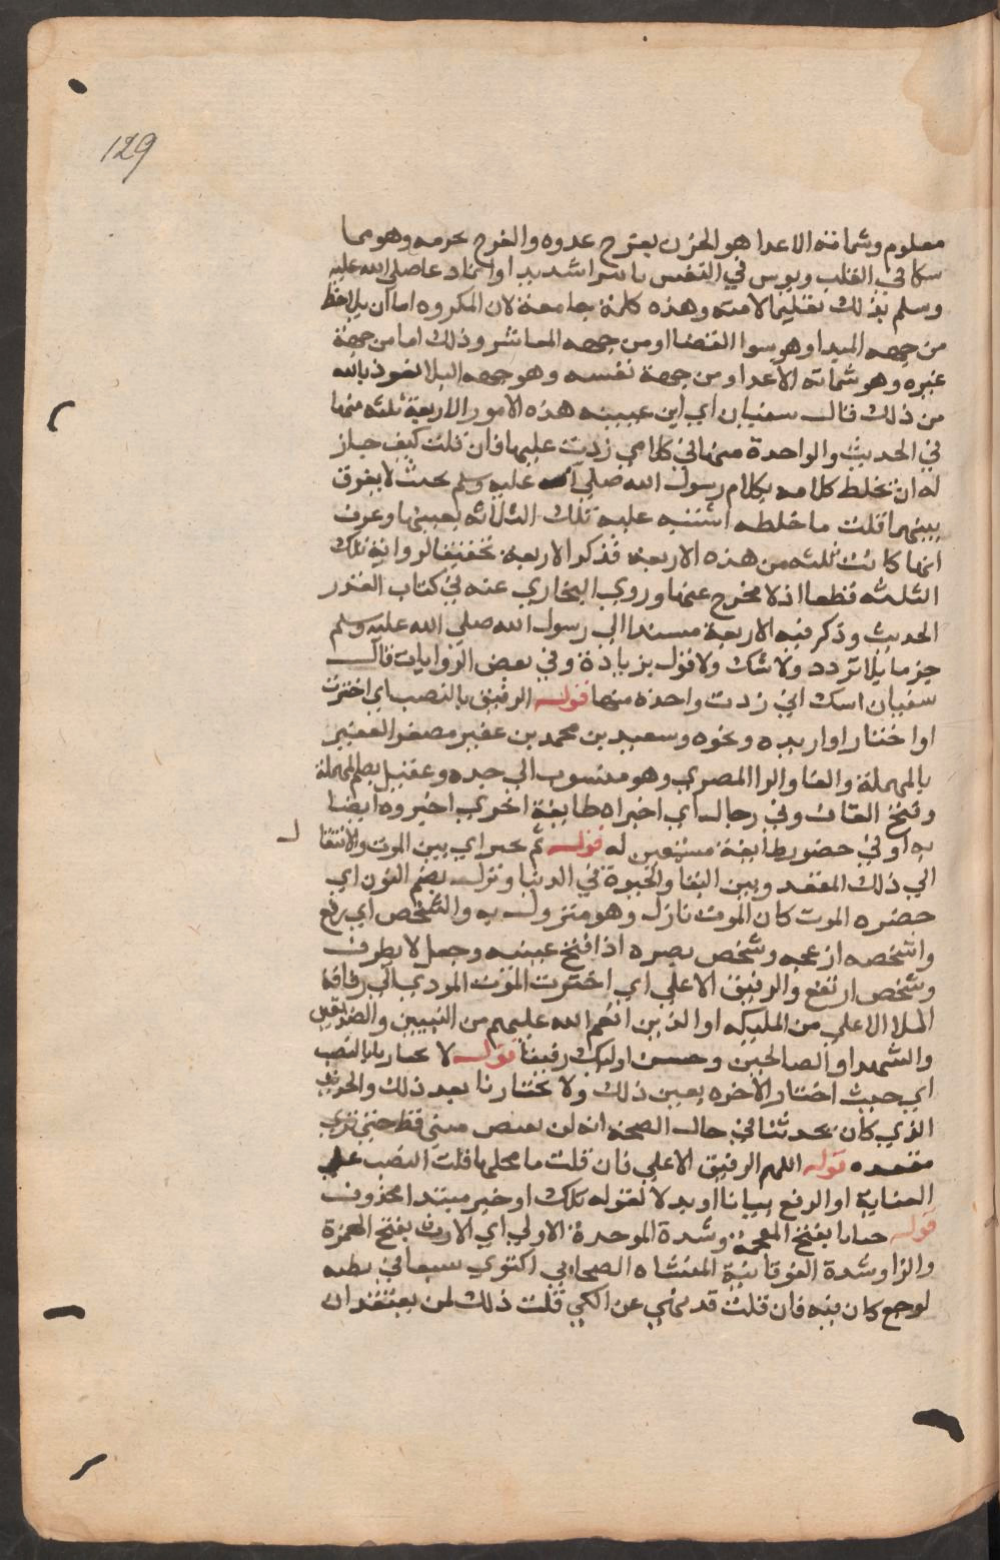 129
معلوم وشماتة الاعدا هو الحزن بفرح عدوه والفرح بحزنه وهو مما
ينكا في القلب ويوثر في النفس تاثيرا شديدا وانما دعا صلي الله عليه
وسلم بذلك تعليما لامته وهذه كلمة جامعة لان المكروه اما ان يلاحظ
من جهة المبدا وهو سوا القضا او من جهه المعاش وذلك اما من جهة
غيره وهو شماتة الاعدا ومن جهة نفسه وهو جهد البلا نعوذ بالله
من ذلك قال سفيان اي ابن عيينه هذه الامور الاربعة ثلثه منها
في الحديث والواحدة منها في كلامي زدت عليها فان قلت كيف جاز
له ان يخلط كلامه بكلام رسول الله صلي الله عليه وسلم بحيث لا يفرق
بينهما قلت ما خلطه اشتبه عليه تلك الثلاثه بعينها وعرف
انها كانت ثلثه من هذه الاربعة فذكر الاربعة تحقيقا لرواية تلك
الثلثه قطعا اذ لا مخرج عنها وروي البخاري عنه في كتاب القدر
الحديث وذكر فيه الاربعة مسندا الي رسول الله صلي الله عليه وسلم
جزما بلا تردد ولا شك ولا قول بزيادة وفي بعض الروايات قال
سفيان اشك اني زدت واحدة منها قوله الرفيق بالنصب اي اخترت
او اختار او اريده ونحوه وسعيد بن محمد بن عفير مصغر العفير
بالمهملة والفا والرا المصري وهو منسوب الي جده وعقيل بضم المهملة
وفتح القاف وفي رجال اي اخبراه طايفة اخري اخبروه ايضا
به او في حضور طايفة مستمعين له قوله ثم يخير اي بين الموت والانتقا ل
الي ذلك المقعد وبين البقا والحيوة في الدنيا ونزل بضم النون اي
حضره الموت كان الموت نازل وهو منزول به واشخص اي رفع
واشخصه ازعجه وشخص بصره اذا فتح عينيه وجعل لا يطرف
وشخص ارتفع والرفيق الاعلي اي اخترت الموت المودي الي رفاقة
الملا الاعلي من المليكه او الذين انعم الله عليهم من النبيين والصديقين
والشهدا والصالحين وحسن اوليك رفيقا قوله لا يختارنا بالنصب
اي حيث اختار الاخره يعين ذلك ولا يختارنا بعد ذلك والحديث
الذي كان يحدثنا في حال الصحة انه لن يقبض نبي قط حتي يري
مقعده قوله اللهم الرفيق الاعلي فان قلت ما محلها قلت النصب علي
العناية او الرفع بيانا او بدلا لقوله تلك او خبر مبتدا محذوف
قوله خبابا بفتح المعجمة وشدة الموحدة الاولي اي الارت بفتح الهمزة
والرا وشدة الفوقانية المثناه الصحابي اكتوي سبعا في بطنه
لوجع كان فيه فان قلت قد نهي عن الكي قلت ذلك لمن يعتقد ان